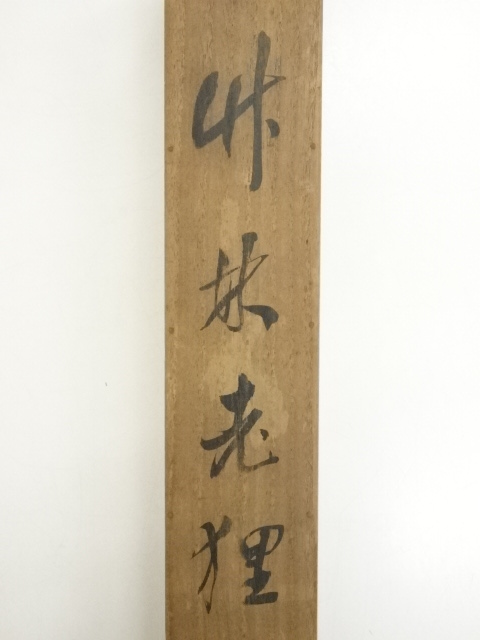 竹林老狸